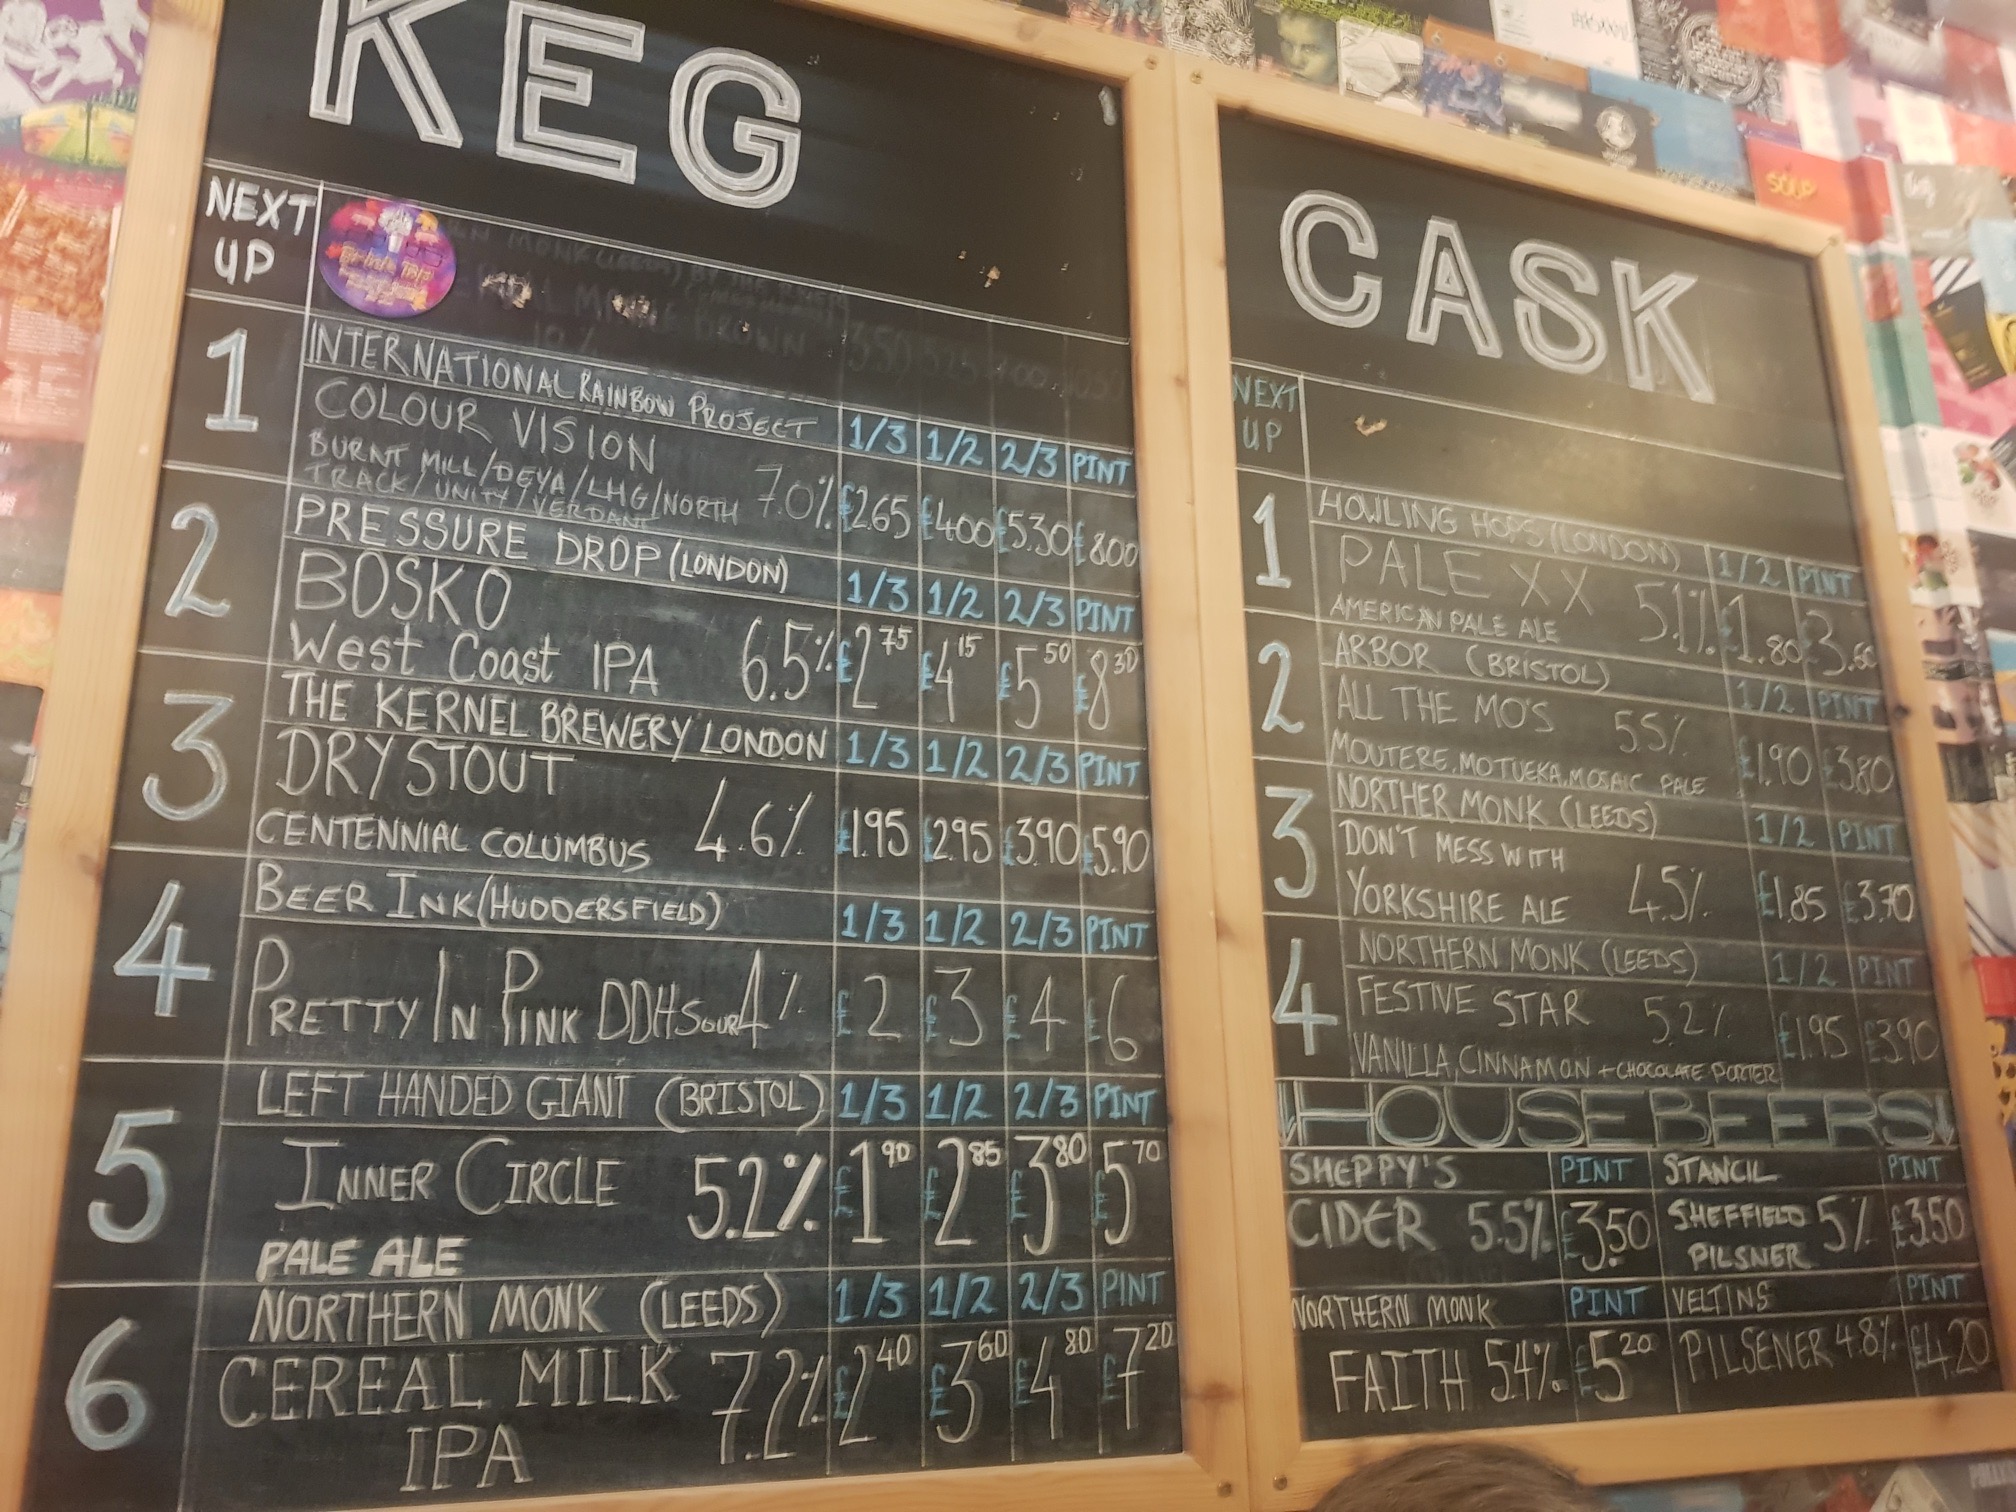 KEG
NEXT UP
1
INTERNATIONAL RAINBOW PROJECT
COLOUR VISION
BURNT MILL/DEYA/LHG/NORTH
TRACK/UNITY/VERDANT
7.0%
1/3 1/2 2/3 PINT
£2.65 £4.00 £5.30 £8.00
2
PRESSURE DROP (LONDON)
1/3 1/2 2/3 PINT
BOSKO
West Coast IPA 6.5% £2.75 £4.15 £5.50 £8.30
3
THE KERNEL BREWERY LONDON 1/3 1/2 2/3 PINT
DRY STOUT
CENTENNIAL COLUMBUS 4.6% £1.95 £2.95 £3.90 £5.90
4
BEER INK (HUDDERSFIELD) 1/3 1/2 2/3 PINT
PRETTY IN PINK DDH SOUR 4% £2 £3 £4 £6
5
LEFT HANDED GIANT (BRISTOL) 1/3 1/2 2/3 PINT
INNER CIRCLE 5.2% £1.90 £2.85 £3.80 £5.70
PALE ALE
6
NORTHERN MONK (LEEDS) 1/3 1/2 2/3 PINT
CEREAL MILK 7.2% £2.40 £3.60 £4.80 £7.20
IPA
CASK
NEXT UP
1
HOWLING HOPS (LONDON) 1/2 PINT
PALE XX 5.1% £1.80 £3.60
AMERICAN PALE ALE
2
ARBOR (BRISTOL) 1/2 PINT
ALL THE MO'S 5.5% £1.90 £3.80
MOUTERE, MOTUEKA, MOSAIC PALE
3
NORTHER MONK (LEEDS) 1/2 PINT
DON'T MESS WITH
YORKSHIRE ALE 4.5% £1.85 £3.70
4
NORTHERN MONK (LEEDS) 1/2 PINT
FESTIVE STAR 5.2% £1.95 £3.90
VANILLA, CINNAMON + CHOCOLATE PORTER
HOUSE BEERS
SHEPPY'S PINT
CIDER 5.5% £3.50
STANCIL PINT
SHEFFIELD PILSNER 5% £3.50
NORTHERN MONK PINT
FAITH 5.4% £5.20
VELTINS PINT
PILSENER 4.8% £4.20
SOUP